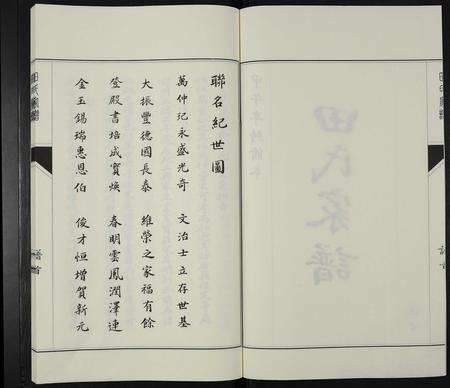 聯名紀世圖
萬仲玘永盛光奇 文治士立存世基
大振豐德國長泰 維榮之家福有餘
登殿書培成寶煥 春明雲鳳潤澤連
金玉錫瑞惠恩伯 俊才恒增賀新元
田氏家譜
譜首
田氏家譜